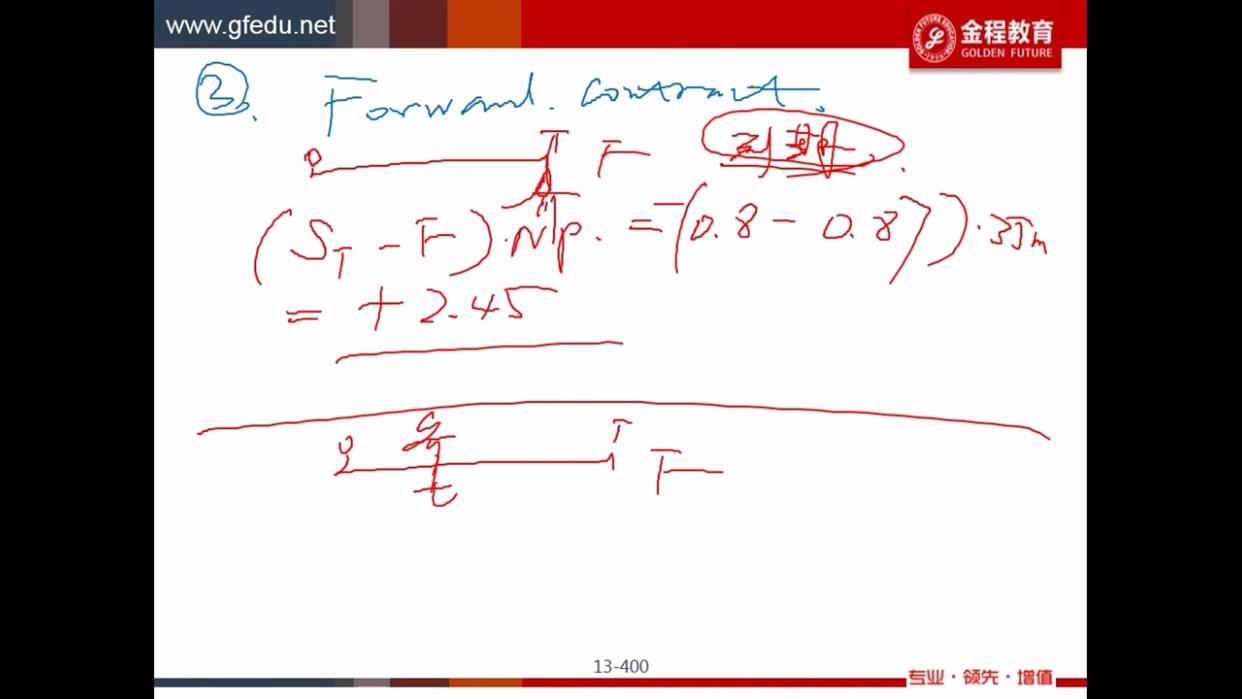 www.gfedu.net
金程教育
GOLDEN FUTURE
③. Forward. contract.
0 T F 到期.
(S_T - F)·NP. = -(0.8 - 0.87)·35m
= + 2.45
0 T F
t
13-400
专业·领先·增值